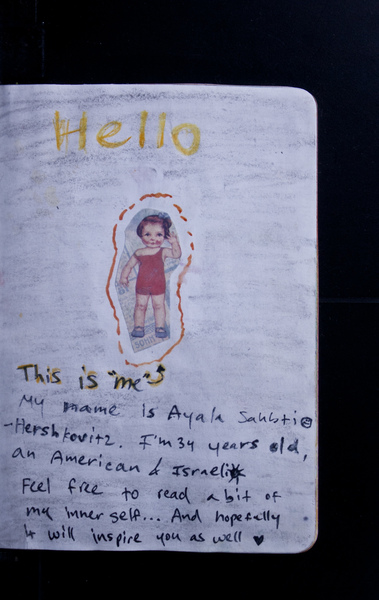 Hello
This is "me"
My name is Ayala
-Hershkovitz. I'm 34 years old,
an American & Israeli
Feel free to read a bit of
my inner self... And hopefully
it will inspire you as well ♥